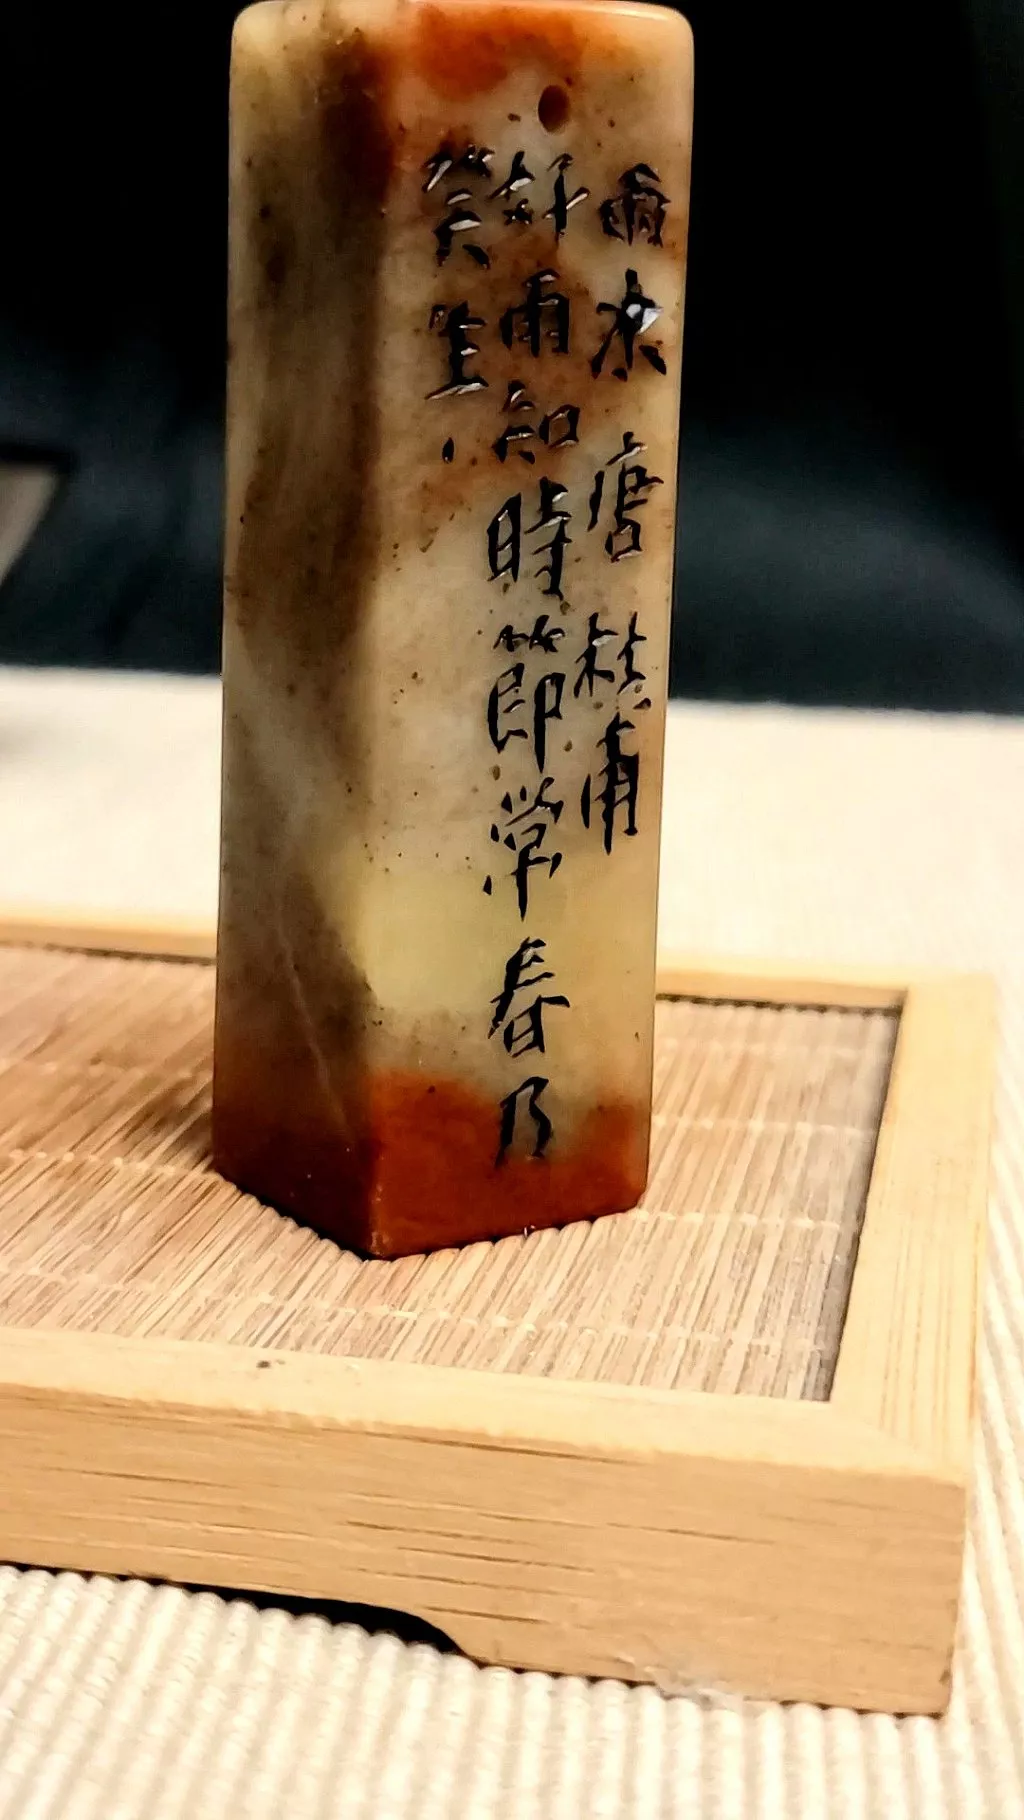 雨來 唐 杜甫
好雨知時節常春乃
癸生